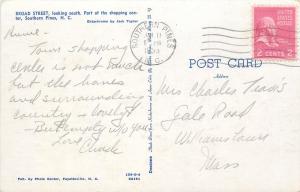 BROAD STREET, looking south. Part of the shopping center, Southern Pines, N. C.
Ektachrome by Jack Taylor
Town shopping
center is not much
but the homes
and surrounding
country is lovely!
But empty w/o you
Love
Pub. by Photo Center, Fayetteville, N. C.
SOUTHERN PINES
N.C.
POST CARD
Address
2 CENTS 2
Mrs Charles
Gale Road
Williamstown
Mass